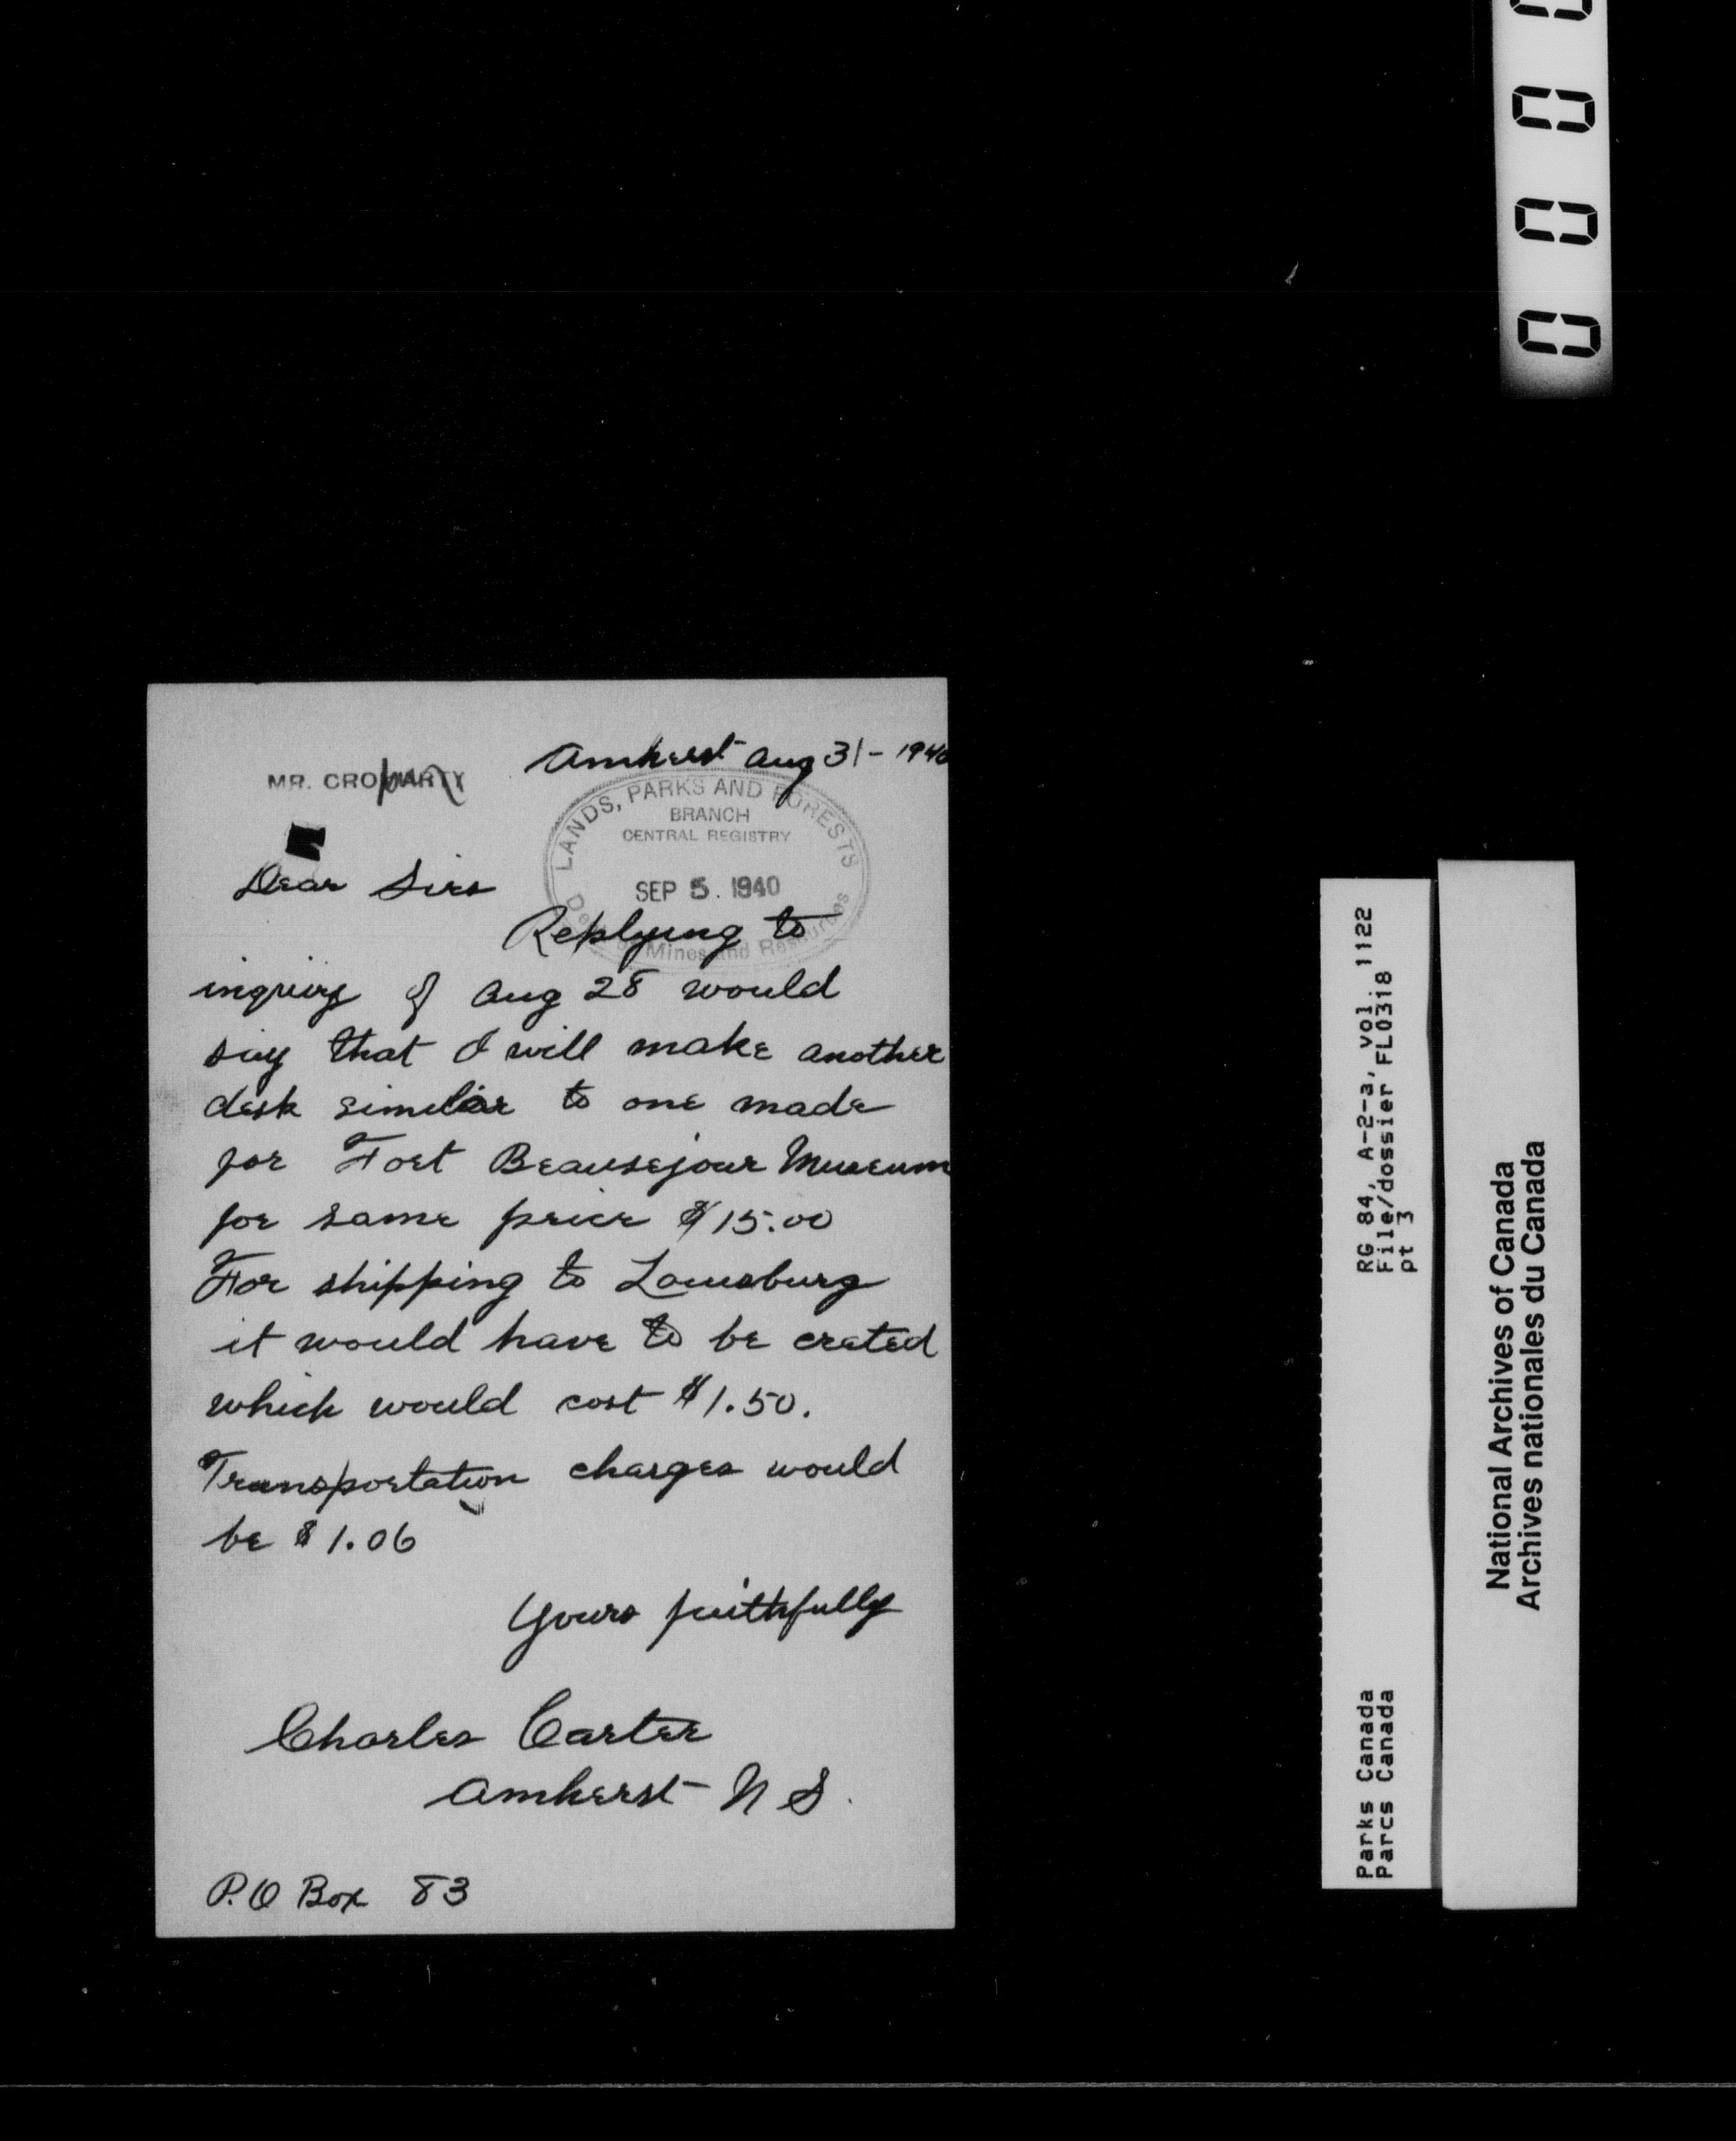 Amherst Aug 31- 1940
MR. CROMARTY
LANDS, PARKS AND FORESTS
BRANCH
CENTRAL REGISTRY
SEP 5. 1940
Mines and Resources
Dear Sirs
Replying to
inquiry of Aug 28 would
say that I will make another
desk similar to one made
for Fort Beausejour Museum
for same price $15.00
For shipping to Louisburg
it would have to be crated
which would cost $1.50.
Transportation charges would
be $1.06
Yours faithfully
Charles Carter
Amherst N S.
P.O Box 83
0 0 0 0
RG 84, A-2-a, vol. 1122
File/dossier FL0318
pt 3
Parks Canada
Parcs Canada
National Archives of Canada
Archives nationales du Canada